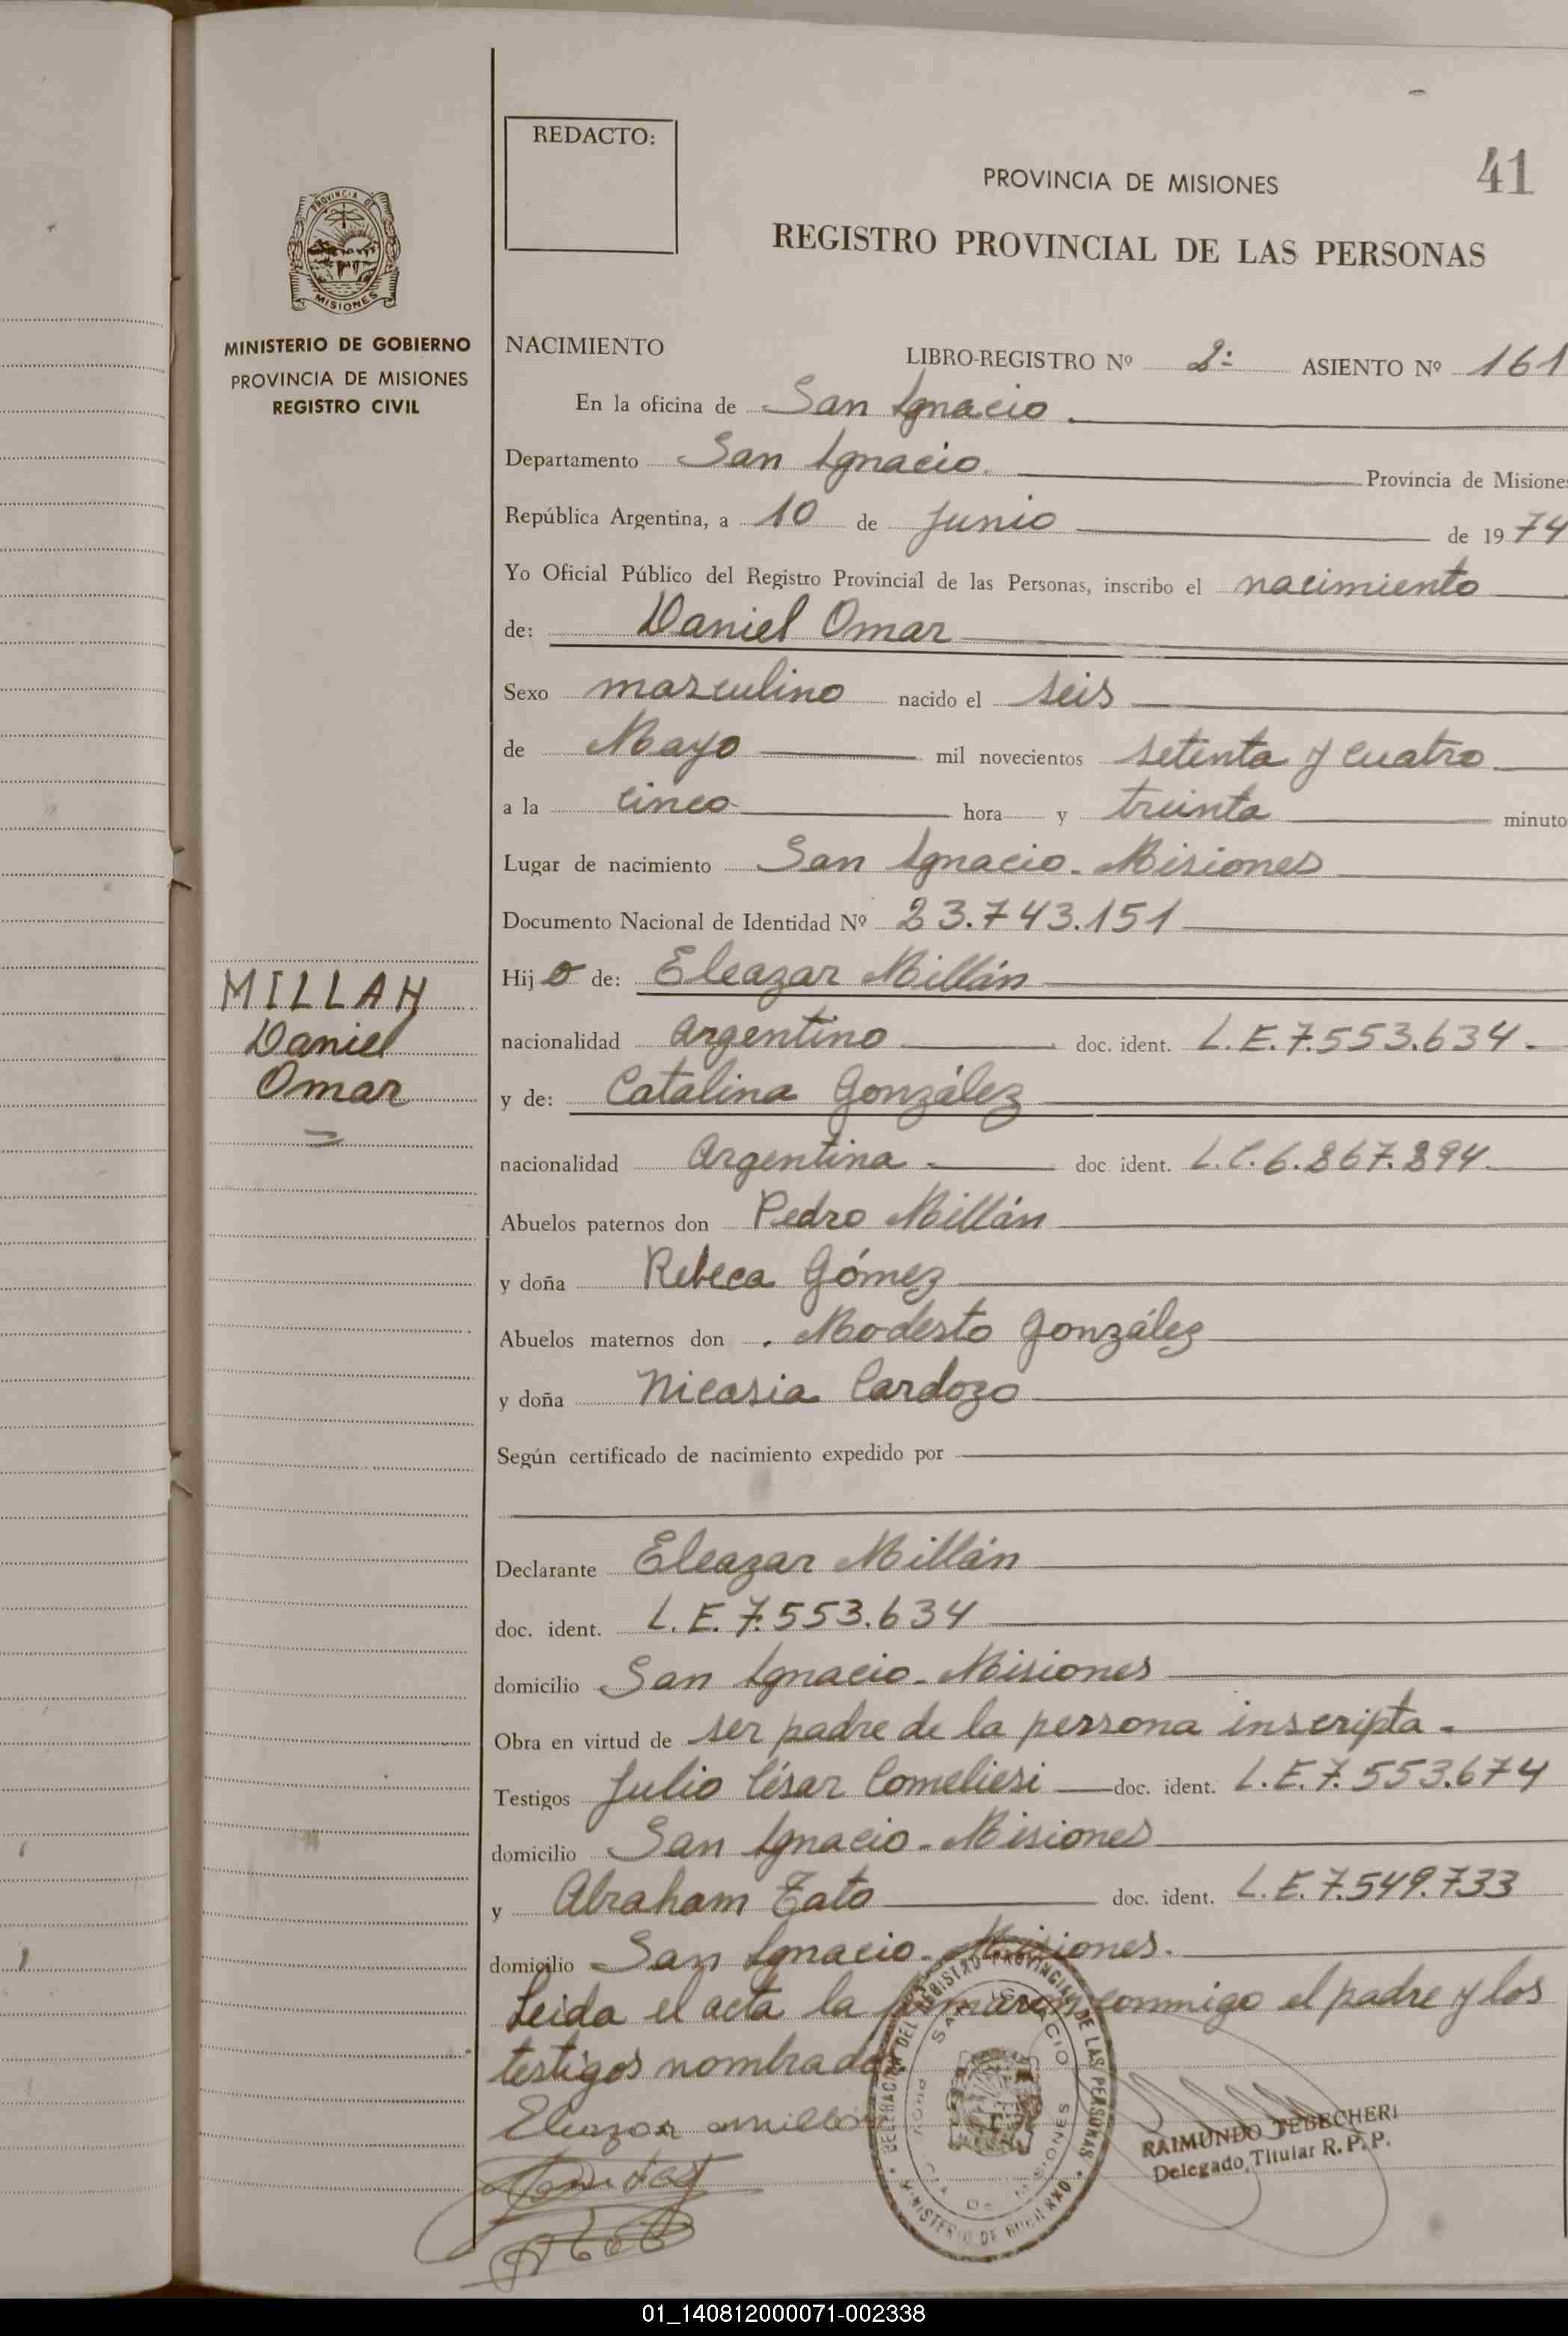 REDACTO:
PROVINCIA DE MISIONES
41
REGISTRO PROVINCIAL DE LAS PERSONAS
PROVINCIA DE
MISIONES
MINISTERIO DE GOBIERNO
PROVINCIA DE MISIONES
REGISTRO CIVIL
NACIMIENTO LIBRO-REGISTRO Nº 2º ASIENTO Nº 161
En la oficina de San Ignacio.
Departamento San Ignacio. Provincia de Misiones
República Argentina, a 10 de Junio de 1974
Yo Oficial Público del Registro Provincial de las Personas, inscribo el nacimiento
de: Daniel Omar
Sexo masculino nacido el seis
de Mayo mil novecientos setenta y cuatro
a la cinco hora y treinta minuto
Lugar de nacimiento San Ignacio - Misiones
Documento Nacional de Identidad Nº 23.743.151
MILLAN
Daniel
Omar
Hijo de: Eleazar Millán
nacionalidad Argentino doc. ident. L.E. 7.553.634 -
y de: Catalina González
nacionalidad Argentina - doc. ident. L.C. 6.867.894
Abuelos paternos don Pedro Millán
y doña Rebeca Gómez
Abuelos maternos don . Modesto González
y doña Nicasia Cardozo
Según certificado de nacimiento expedido por
Declarante Eleazar Millán
doc. ident. L.E. 7.553.634
domicilio San Ignacio - Misiones
Obra en virtud de ser padre de la persona inscripta -
Testigos Julio César Comeliesi doc. ident. L.E. 7.553.674
domicilio San Ignacio - Misiones
y Abraham Tato doc. ident. L.E. 7.549.733
domicilio San Ignacio - Misiones.
Leida el acta la firmaron conmigo el padre y los
testigos nombrados
Eleazar Millán
DELEGACION DEL REGISTRO PROVINCIAL DE LAS PERSONAS
SAN IGNACIO
PROVINCIA DE MISIONES
MINISTERIO DE GOBIERNO
RAIMUNDO TEBECHERI
Delegado Titular R. P. P.
01_140812000071-002338